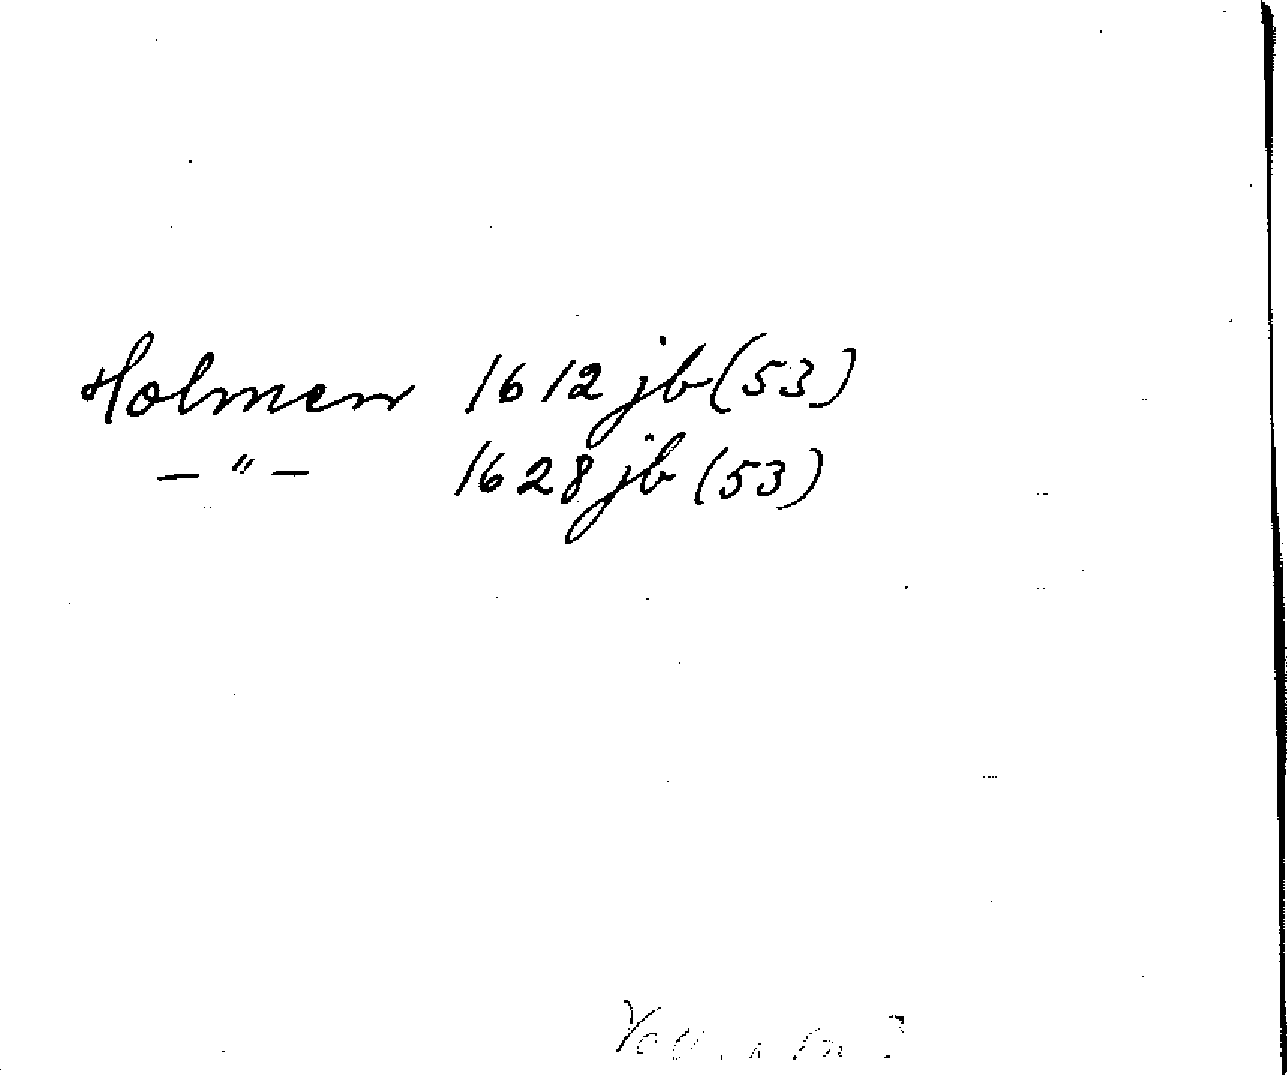 Holmen 1612 jb (53)
— " — 1628 jb (53)